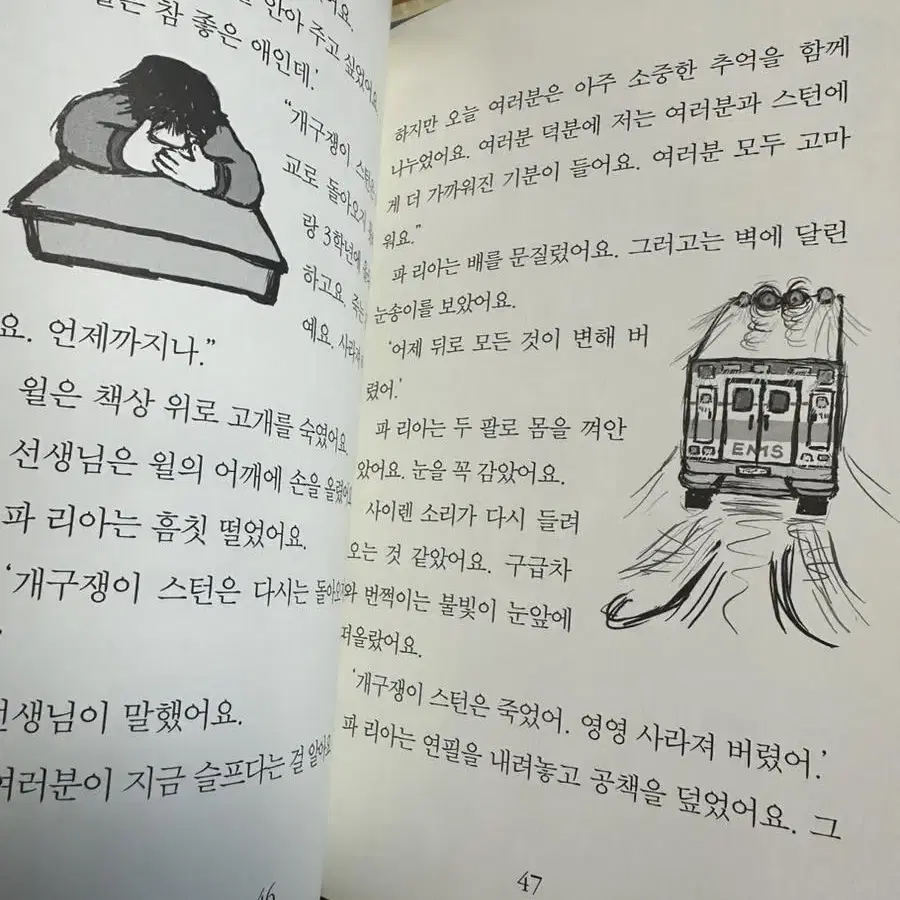 안아 주고 싶었어요.
참 좋은 애인데.'
"개구쟁이
교로 돌아오기
랑 3학년에
하고요. 죽는
예요. 사라져
요. 언제까지나."
윌은 책상 위로 고개를 숙였어요.
선생님은 윌의 어깨에 손을 올렸어요
파 리아는 흠칫 떨었어요.
'개구쟁이 스턴은 다시는 돌아오지
선생님이 말했어요.
여러분이 지금 슬프다는 걸 알아요
46
하지만 오늘 여러분은 아주 소중한 추억을 함께
나누었어요. 여러분 덕분에 저는 여러분과 스턴에
게 더 가까워진 기분이 들어요. 여러분 모두 고마
워요."
파 리아는 배를 문질렀어요. 그러고는 벽에 달린
눈송이를 보았어요.
'어제 뒤로 모든 것이 변해 버
렸어.'
파 리아는 두 팔로 몸을 껴안
았어요. 눈을 꼭 감았어요.
사이렌 소리가 다시 들려
오는 것 같았어요. 구급차
와 번쩍이는 불빛이 눈앞에
떠올랐어요.
'개구쟁이 스턴은 죽었어. 영영 사라져 버렸어.'
파 리아는 연필을 내려놓고 공책을 덮었어요. 그
EMS
47